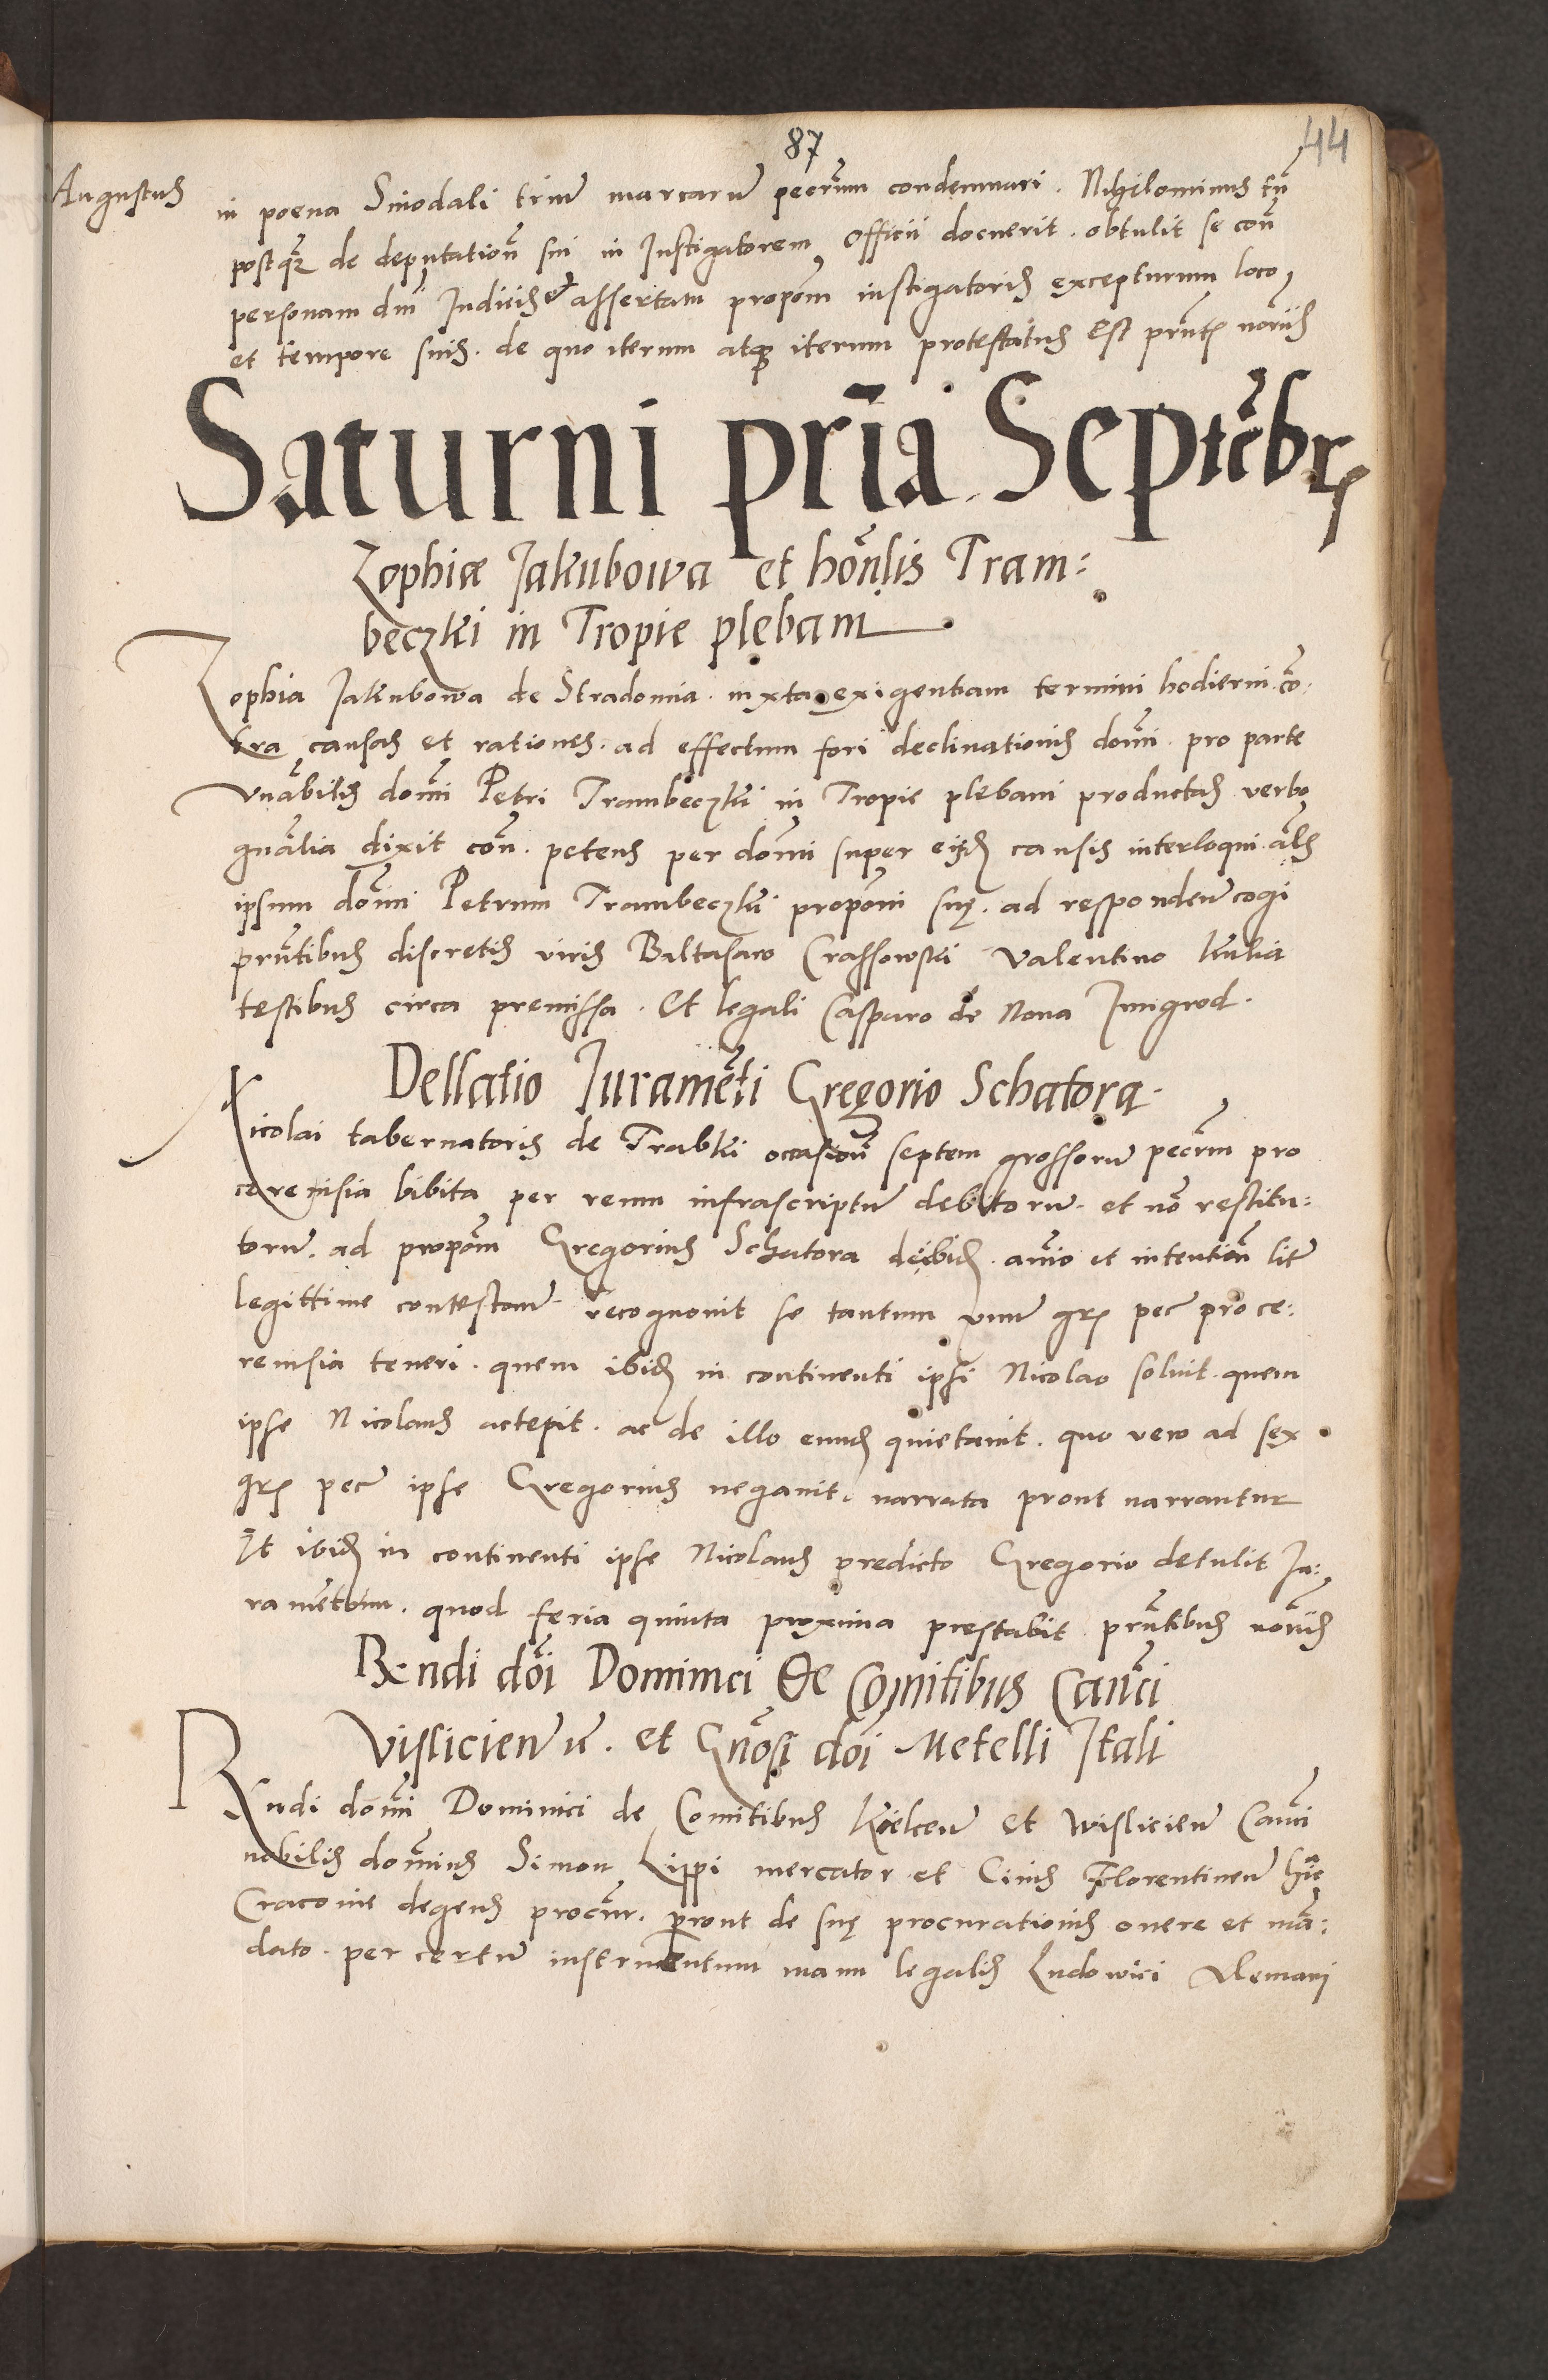 87
44
Augustus
in poena Sinodali trium marcarum pecũarum condemnari. Nihilominus tñ
postq̃ de deputatioñ sui in Instigatorem Officii docuerit. obtulit se coñ
personam dñi Iudicis et assertam propõem instigatoris excepturum loco
et tempore suis. de quo iterum atq iterum protestatus est prñt
Saturni prĩa Septẽbr
Zophiæ Jakubowa et hoñlis Tram:
beczki in Tropie plebani
Zophia Jakubowa de Stradomia. iuxta exigentiam termini hodierni cõ
tra causas et rationes. ad effectum fori declinationis domĩ. pro parte
Vnãbilis domĩ Petri Trambeczki in Tropie plebani productas verbo
gnãlia dixit coñ. petens per domĩ super eisd causis interloqui. als
ipsum domĩ Petrum Trambeczki propõni suę. ad respondeñ cogi
prñtibus discretis viris Baltasaro Crassowski Valentino Kulia
testibus circa premissa. Et legali Casparo de Nova Imigrod.
Dellatio Iuramẽti Gregorio Schatora.
Nicolai tabernatoris de Trabki occasioñ septem grossorũ pecũm pro
cerevisia bibita per reum infrascriptũ debitorũ. et nõ restitu:
torũ. ad propõm Gregorius Schatora deibid. anĩo et intentioñ litẽ
legittime contestanĩ recognovit se tantum vnũ gr pec pro ce:
revisia teneri. quem ibid in continenti ipsi Nicolao solvit. quem
ipse Nicolaus accepit. ac de illo eund quietavit. quo vero ad sex
gr pec ipse Gregorius negavit. narrata prout narrantur
Et ibid in continenti ipse Nicolaus predicto Gregorio detulit Iu:
ramẽtum. quod feria quinta proxima prestabit prñtibus
Rendi dõi Dominici de Comitibus Canõci
Visliciens̃. et Gñosi dõi Metelli Itali
Rndi domĩ Dominici de Comitibus Kielceñ et Wislicieñ Canõci
nobilis domĩnus Simon Lippi mercator et Civis Florentineñ hic
Cracovie degens procur. prout de suę procurationis onere et mã:
dato. per certũ instrumentum manu legalis Ludovici Alemani